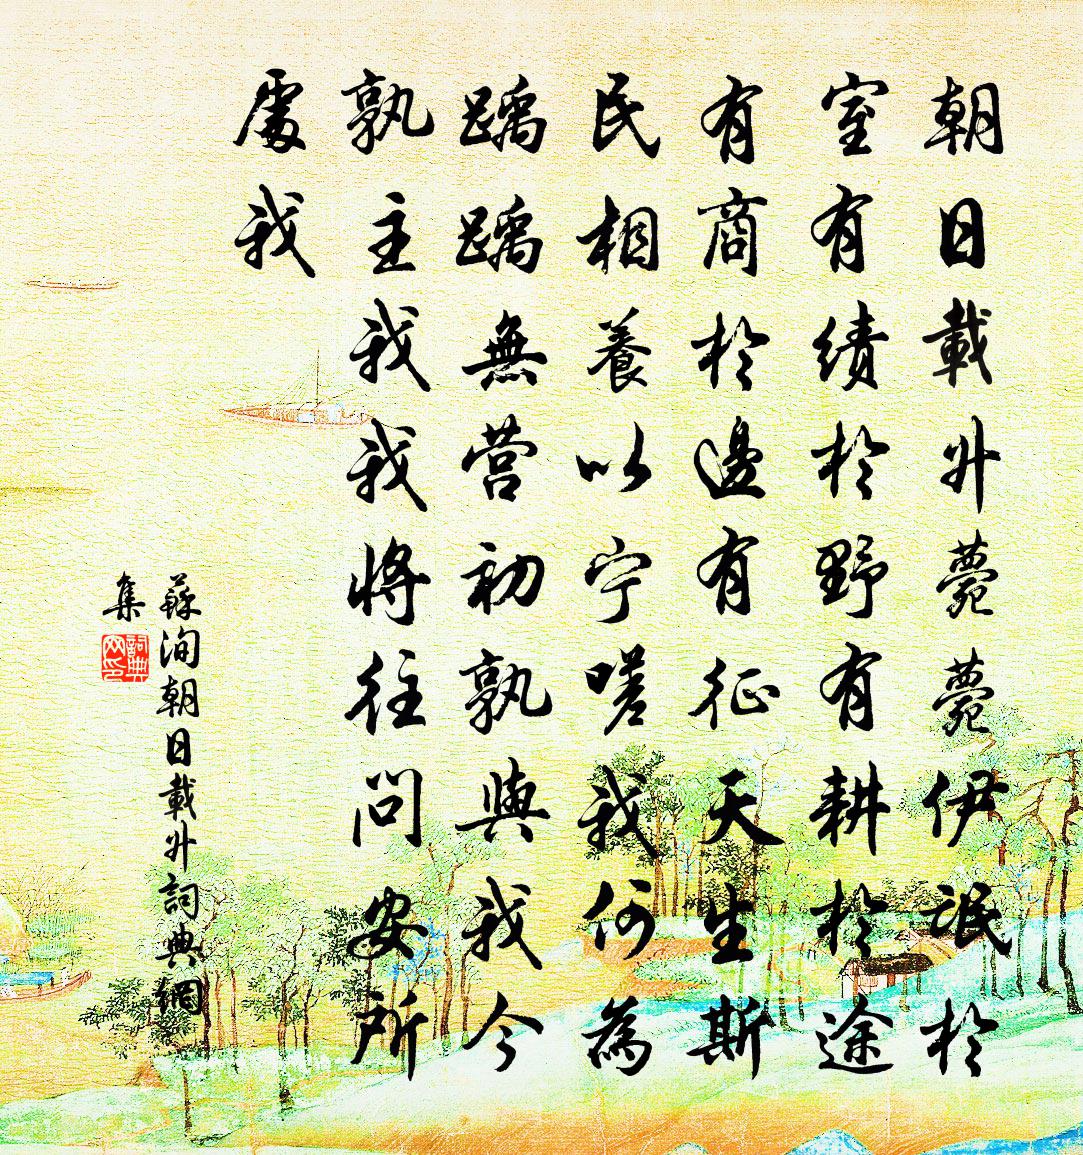 朝日載升薨薨伊氓於
室有績於野有耕於途
有商於邊有征天生斯
民相養以宁嗟我何為
踽踽無营初孰與我今
孰主我我將往問安所
處我
蘇洵朝日載升詞典網
集
詞典
网印